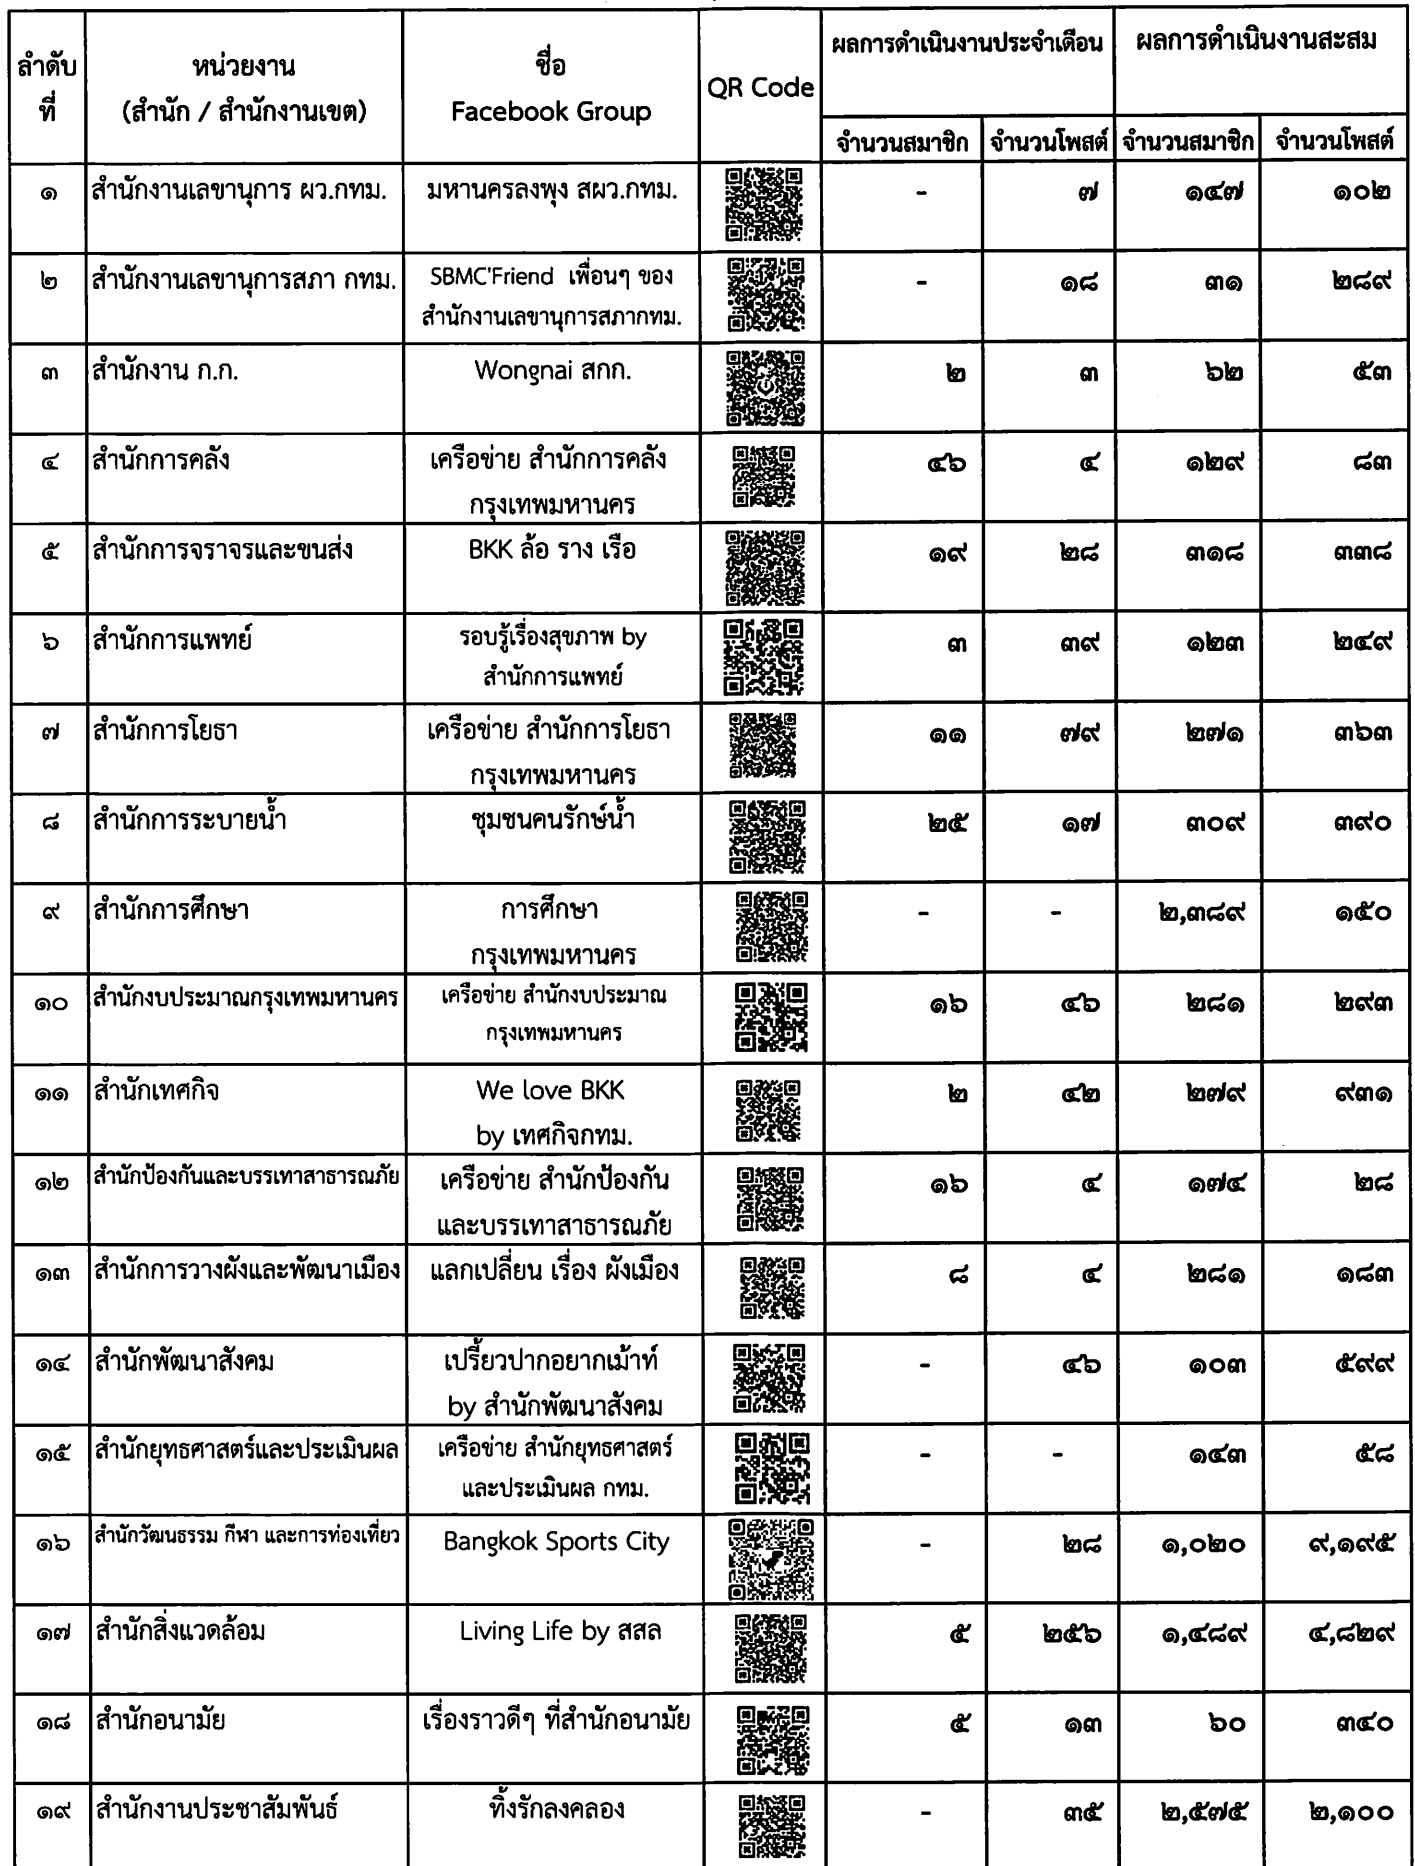 ลำดับ
ที่
หน่วยงาน
(สำนัก / สำนักงานเขต)
ชื่อ
Facebook Group
QR Code
ผลการดำเนินงานประจำเดือน
ผลการดำเนินงานสะสม
จำนวนสมาชิก จำนวนโพสต์ จำนวนสมาชิก จำนวนโพสต์
๑ สำนักงานเลขานุการ ผว.กทม. มหานครลงพุง สผว.กทม. - ๗ ๑๔๗ ๑๐๒
๒ สำนักงานเลขานุการสภา กทม. SBMC'Friend เพื่อนๆ ของ - ๑๘ ๓๑ ๒๘๙
สำนักงานเลขานุการสภากทม.
๓ สำนักงาน ก.ก. Wongnai สกก. ๒ ๓ ๖๒ ๕๓
๔ สำนักการคลัง เครือข่าย สำนักการคลัง ๔๖ ๔ ๑๒๙ ๘๓
กรุงเทพมหานคร
๕ สำนักการจราจรและขนส่ง BKK ล้อ ราง เรือ ๑๙ ๒๘ ๓๑๘ ๓๓๘
๖ สำนักการแพทย์ รอบรู้เรื่องสุขภาพ by ๓ ๓๙ ๑๒๓ ๒๔๙
สำนักการแพทย์
๗ สำนักการโยธา เครือข่าย สำนักการโยธา ๑๑ ๗๙ ๒๗๑ ๓๖๓
กรุงเทพมหานคร
๘ สำนักการระบายน้ำ ชุมชนคนรักษ์น้ำ ๒๕ ๑๗ ๓๐๙ ๓๙๐
๙ สำนักการศึกษา การศึกษา - - ๒,๓๘๙ ๑๕๐
กรุงเทพมหานคร
๑๐ สำนักงบประมาณกรุงเทพมหานคร เครือข่าย สำนักงบประมาณ ๑๖ ๔๖ ๒๘๑ ๒๙๓
กรุงเทพมหานคร
๑๑ สำนักเทศกิจ We love BKK ๒ ๔๒ ๒๗๙ ๙๓๑
by เทศกิจกทม.
๑๒ สำนักป้องกันและบรรเทาสาธารณภัย เครือข่าย สำนักป้องกัน ๑๖ ๔ ๑๗๔ ๒๘
และบรรเทาสาธารณภัย
๑๓ สำนักการวางผังและพัฒนาเมือง แลกเปลี่ยน เรื่อง ผังเมือง ๘ ๔ ๒๘๑ ๑๘๓
๑๔ สำนักพัฒนาสังคม เปรี้ยวปากอยากเม้าท์ - ๔๖ ๑๐๓ ๕๙๙
by สำนักพัฒนาสังคม
๑๕ สำนักยุทธศาสตร์และประเมินผล เครือข่าย สำนักยุทธศาสตร์ - - ๑๔๓ ๕๘
และประเมินผล กทม.
๑๖ สำนักวัฒนธรรม กีฬา และการท่องเที่ยว Bangkok Sports City - ๒๘ ๑,๐๒๐ ๙,๑๙๕
๑๗ สำนักสิ่งแวดล้อม Living Life by สสล ๕ ๒๕๖ ๑,๔๘๙ ๔,๘๒๙
๑๘ สำนักอนามัย เรื่องราวดีๆ ที่สำนักอนามัย ๕ ๑๓ ๖๐ ๓๔๐
๑๙ สำนักงานประชาสัมพันธ์ ทิ้งรักลงคลอง - ๓๕ ๒,๕๗๕ ๒,๑๐๐